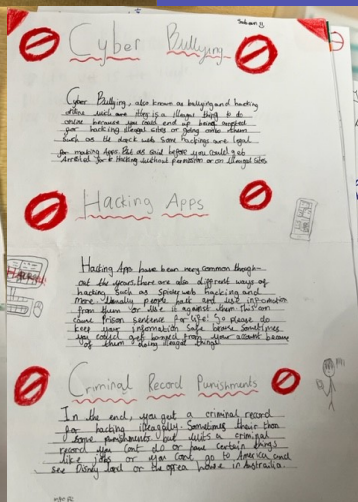 Cyber Bullying
Cyber Bullying, also known as bullying and hacking
online such are this is a illegal thing to do
online because you could end up being arrested
for hacking illegal sites or going onto them
Such as the dark web Some hackings are legal
for making Apps. But as said before you could get
Arrested for Hacking without permission or on Illegal Sites
Hacking Apps
Hacking App have been very common though-
out the years. there are also different ways of
hacking such as spider web hacking and
more Usually people hack and use information
from them or use is against them This can
cause prison sentence for life! So please do
keep your information safe because sometimes
you could get banned from your account because
of them doing illegal things
Criminal Record Punishments
In the end, you get a criminal record
for hacking illegally. Sometimes their than
some punishments but with a criminal
record you Cant do or have certain things
like jobs or you cant go to America and
see Disney land or the opera house in Australia.